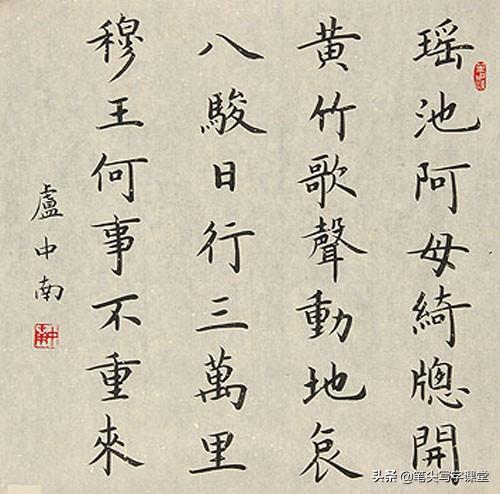 瑶池阿母綺牕開
黄竹歌聲動地哀
八駿日行三萬里
穆王何事不重來
盧中南
头条 @笔尖写字课堂